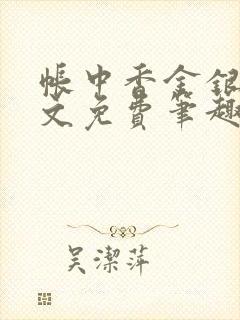 帐中香金银
文免费笔趣
吴潔萍